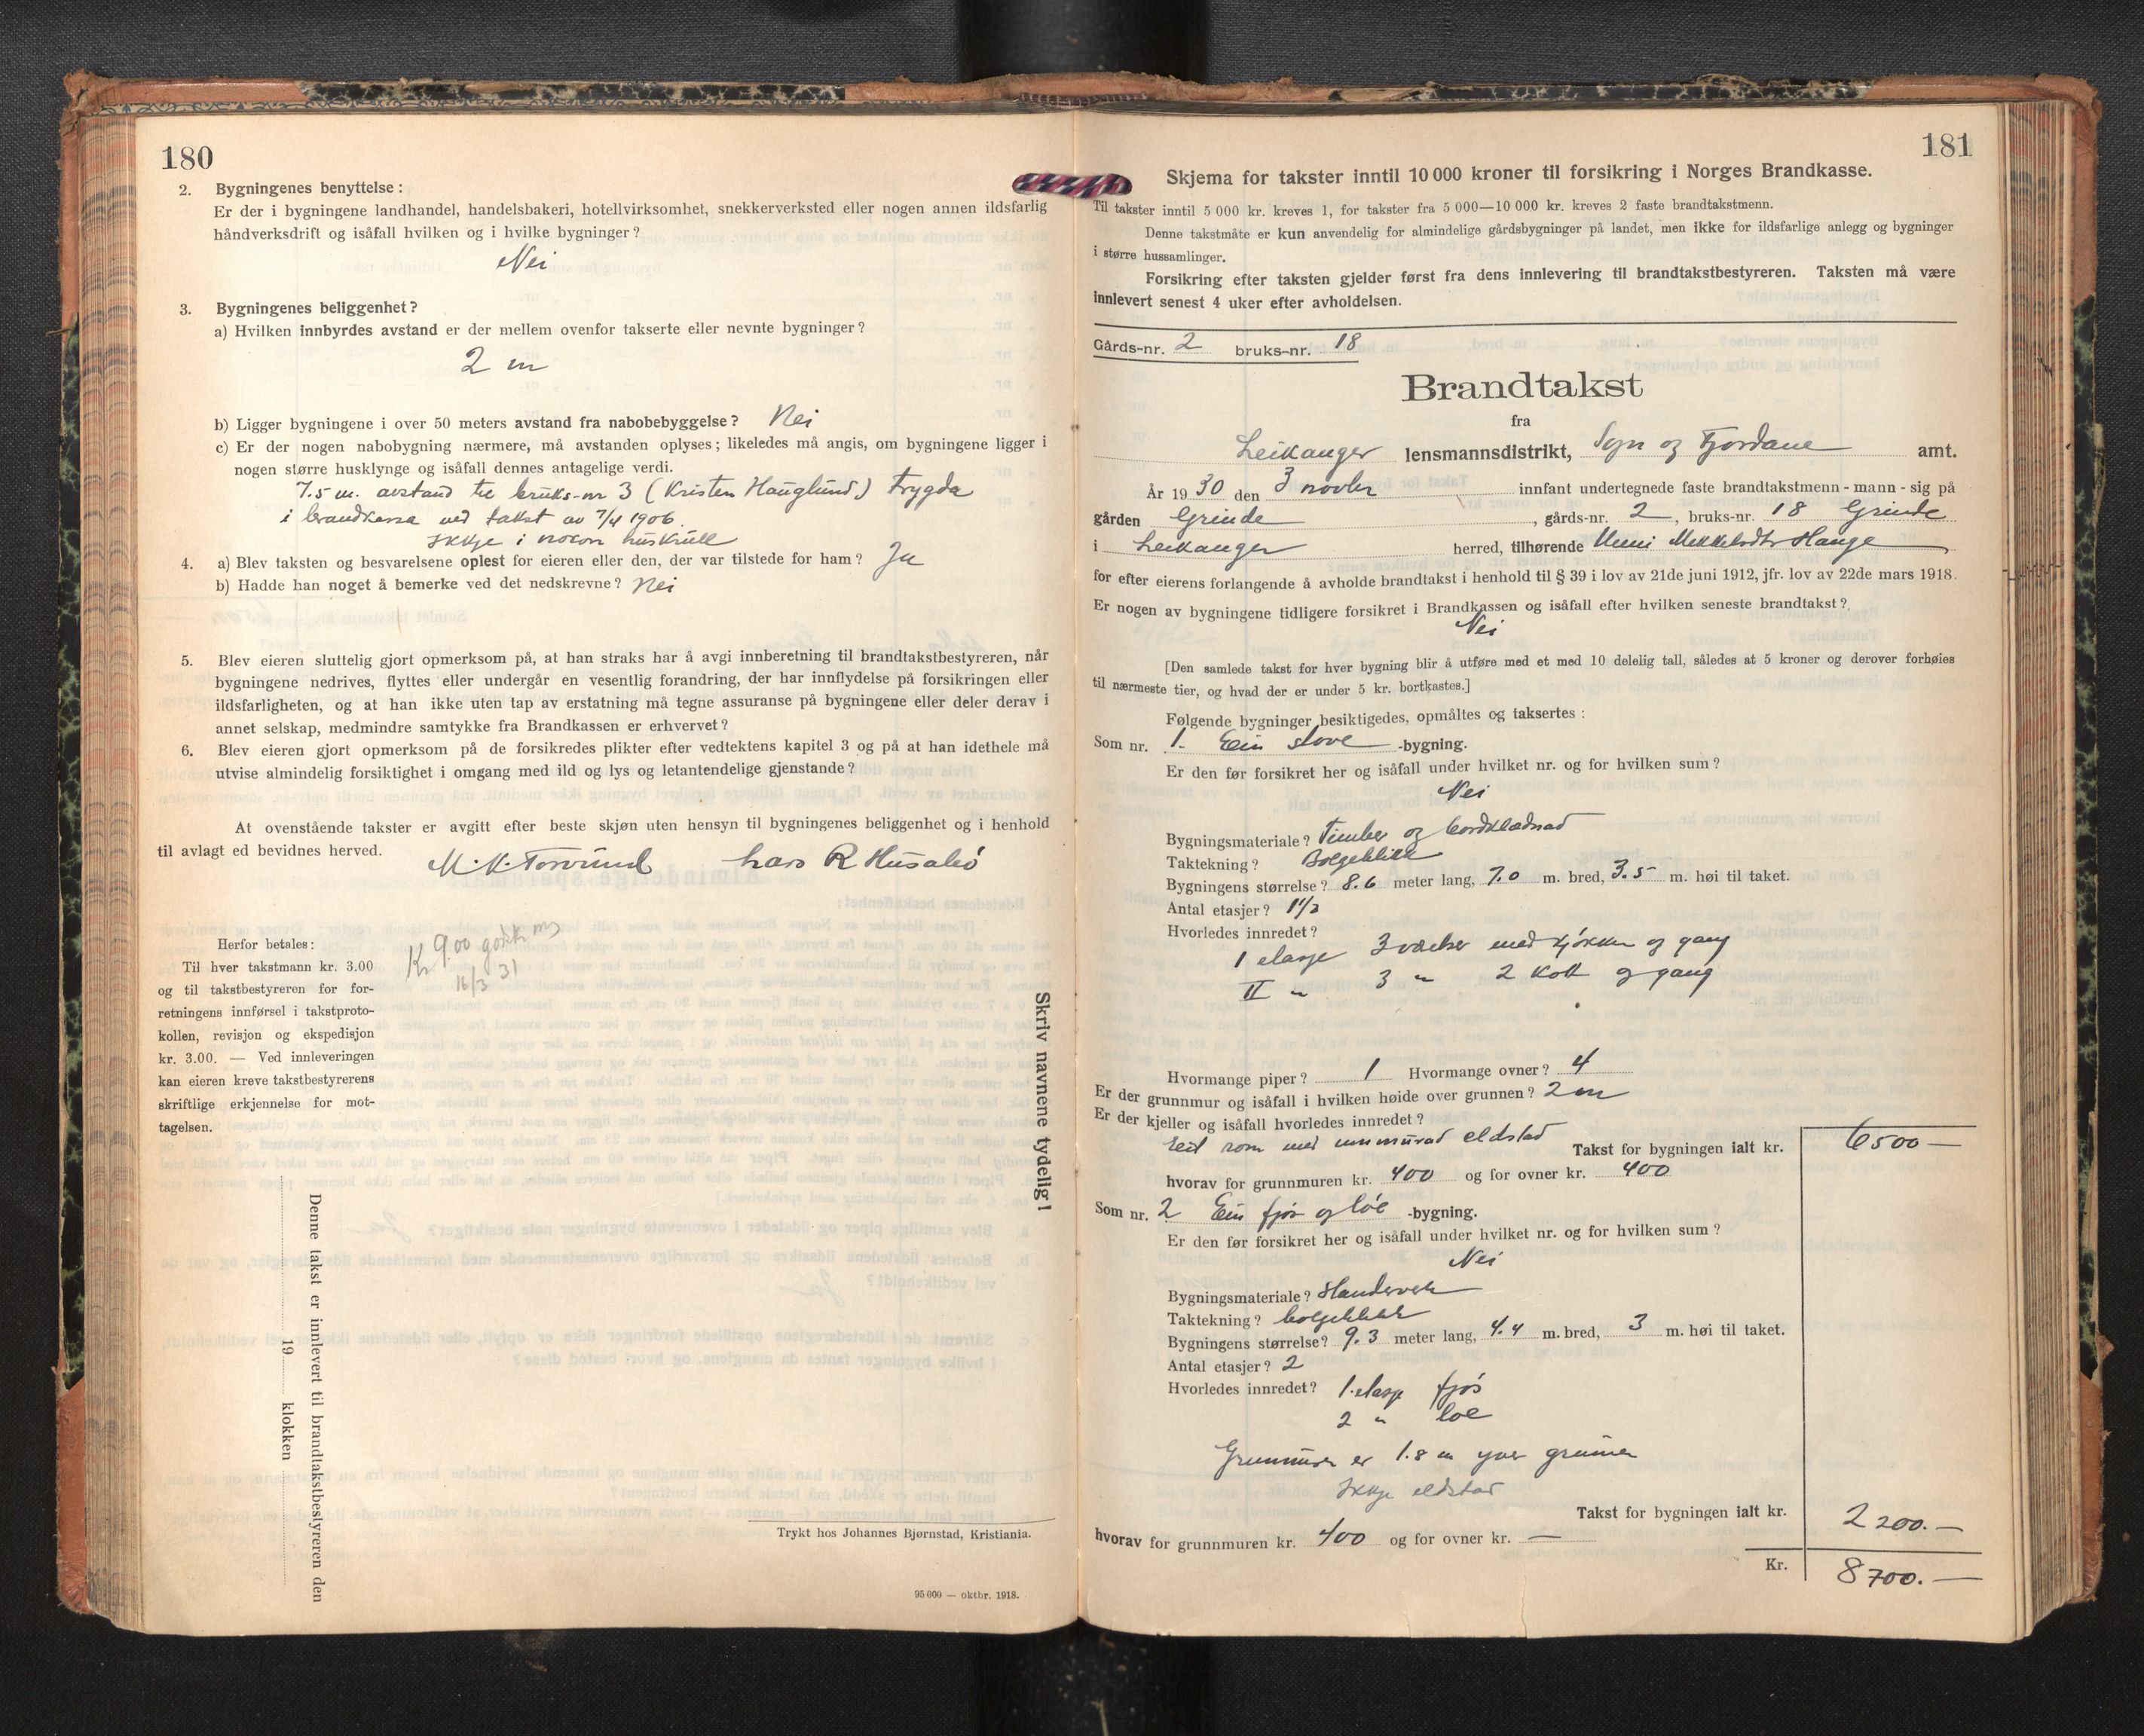 180
2. Bygningenes benyttelse:
Er der i bygningene landhandel, handelsbakeri, hotellvirksomhet, snekkerverksted eller nogen annen ildsfarlig
håndverksdrift og isåfall hvilken og i hvilke bygninger?
Nei
3. Bygningenes beliggenhet?
a) Hvilken innbyrdes avstand er der mellem ovenfor takserte eller nevnte bygninger?
2 m
b) Ligger bygningene i over 50 meters avstand fra nabobebyggelse? Nei
c) Er der nogen nabobygning nærmere, må avstanden oplyses; likeledes må angis, om bygningene ligger i
nogen større husklynge og isåfall dennes antagelige verdi.
7.5 m. avstand til bruks-nr 3 (Kristen Hauglund) Trygda
i brandkassa ved takst av 7/4 1906.
Ikkje i nokon huskrull
4. a) Blev taksten og besvarelsene oplest for eieren eller den, der var tilstede for ham? Ja
b) Hadde han noget å bemerke ved det nedskrevne? Nei
5. Blev eieren sluttelig gjort opmerksom på, at han straks har å avgi innberetning til brandtakstbestyreren, når
bygningene nedrives, flyttes eller undergår en vesentlig forandring, der har innflydelse på forsikringen eller
ildsfarligheten, og at han ikke uten tap av erstatning må tegne assuranse på bygningene eller deler derav i
annet selskap, medmindre samtykke fra Brandkassen er erhvervet?
6. Blev eieren gjort opmerksom på de forsikredes plikter efter vedtektens kapitel 3 og på at han idethele må
utvise almindelig forsiktighet i omgang med ild og lys og letantendelige gjenstande?
At ovenstående takster er avgitt efter beste skjøn uten hensyn til bygningenes beliggenhet og i henhold
til avlagt ed bevidnes herved.
M. K. Torvund Lars R Husabø
Herfor betales:
Til hver takstmann kr. 3.00
og til takstbestyreren for for-
retningens innførsel i takstproto-
kollen, revisjon og ekspedisjon
kr. 3.00. — Ved innleveringen
kan eieren kreve takstbestyrerens
skriftlige erkjennelse for mot-
tagelsen.
Kr 9.00
16/3 31
Skriv navnene tydelig!
Denne takst er innlevert til brandtakstbestyreren den
19 klokken
Trykt hos Johannes Bjørnstad, Kristiania.
95 000 — oktbr. 1918.
181
Skjema for takster inntil 10 000 kroner til forsikring i Norges Brandkasse.
Til takster inntil 5 000 kr. kreves 1, for takster fra 5 000—10 000 kr. kreves 2 faste brandtakstmenn.
Denne takstmåte er kun anvendelig for almindelige gårdsbygninger på landet, men ikke for ildsfarlige anlegg og bygninger
i større hussamlinger.
Forsikring efter taksten gjelder først fra dens innlevering til brandtakstbestyreren. Taksten må være
innlevert senest 4 uker efter avholdelsen.
Gårds-nr. 2 bruks-nr. 18
Brandtakst
fra
Leikanger lensmannsdistrikt, Sogn og Fjordane amt.
År 1930 den 3 novbr innfant undertegnede faste brandtakstmenn - mann - sig på
gården Grinde, gårds-nr. 2, bruks-nr. 18 Grinde
i Leikanger herred, tilhørende Mikkelsdtr Hauge
for efter eierens forlangende å avholde brandtakst i henhold til § 39 i lov av 21de juni 1912, jfr. lov av 22de mars 1918.
Er nogen av bygningene tidligere forsikret i Brandkassen og isåfall efter hvilken seneste brandtakst?
Nei
[Den samlede takst for hver bygning blir å utføre med et med 10 delelig tall, således at 5 kroner og derover forhøies
til nærmeste tier, og hvad der er under 5 kr. bortkastes.]
Følgende bygninger besiktigedes, opmåltes og taksertes:
Som nr. 1. Ein stove -bygning.
Er den før forsikret her og isåfall under hvilket nr. og for hvilken sum?
Nei
Bygningsmateriale? Timber og bordklædnad
Taktekning? Bolgeblikk
Bygningens størrelse? 8.6 meter lang, 7.0 m. bred, 3.5 m. høi til taket.
Antal etasjer? 1½
Hvorledes innredet?
1 etasje 3 værelser med kjøkken og gang
II " 3 " 2 kott og gang
Hvormange piper? 1 Hvormange ovner? 4
Er der grunnmur og isåfall i hvilken høide over grunnen? 2 m
Er der kjeller og isåfall hvorledes innredet?
Eit rom med innmurad eldstad Takst for bygningen ialt kr. 6500 —
hvorav for grunnmuren kr. 400 og for ovner kr. 400
Som nr. 2 Ein fjøs og løe -bygning.
Er den før forsikret her og isåfall under hvilket nr. og for hvilken sum?
Nei
Bygningsmateriale? Standerverk
Taktekning? bolgeblikk
Bygningens størrelse? 9.3 meter lang, 4.4 m. bred, 3 m. høi til taket.
Antal etasjer? 2
Hvorledes innredet? 1. etasje fjøs
2 " løe
Grunnmuren er 1.8 m yver grunnen
Ikkje eldstad
Takst for bygningen ialt kr. 2200.—
hvorav for grunnmuren kr. 400 og for ovner kr. —
Kr. 8700.—